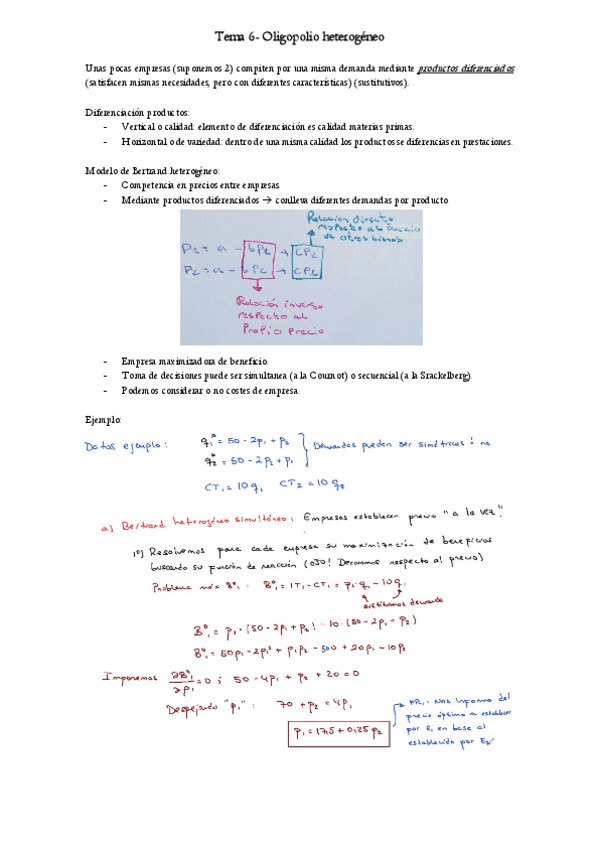 Tema 6- Oligopolio heterogéneo
Unas pocas empresas (suponemos 2) compiten por una misma demanda mediante productos diferenciados
(satisfacen mismas necesidades, pero con diferentes características) (sustitutivos).
Diferenciación productos:
- Vertical o calidad: elemento de diferenciación es calidad materias primas.
- Horizontal o de variedad: dentro de una misma calidad los productos se diferencias en prestaciones.
Modelo de Bertrand heterogéneo:
- Competencia en precios entre empresas.
- Mediante productos diferenciados → conlleva diferentes demandas por producto
Relación directa
respecto al precio
de otros bienes
P2 = a - bP2 → CP2
P2 = a - bP2 → CP2
Relación inversa
respecto al
Propio Precio
- Empresa maximizadora de beneficio.
- Toma de decisiones puede ser simultanea (a la Cournot) o secuencial (a la Srackelberg).
- Podemos considerar o no costes de empresa.
Ejemplo:
Datos ejemplo: q1ᴰ = 50 - 2p1 + p2 } Demandas pueden ser simétricas ó no
q2ᴰ = 50 - 2p2 + p1
CT1 = 10q1 CT2 = 10q2
a) Bertrand heterogéneo simultáneo: Empresas establecen precio "a la vez".
1º) Resolvemos para cada empresa su maximización de beneficios
buscando su función de reacción (OJO! Derivamos respecto al precio)
Problema máx Bº1: Bº1 = IT1 - CT1 = p1·q1 - 10q1
sustituimos demanda
Bº1 = p1·(50 - 2p1 + p2) - 10·(50 - 2p1 + p2)
Bº1 = 50p1 - 2p1² + p1p2 - 500 + 20p1 - 10p2
Imponemos ∂Bº1/∂p1 = 0 ; 50 - 4p1 + p2 + 20 = 0
Despejando "p1": 70 + p2 = 4p1
p1 = 17,5 + 0,25p2
FR1: Nos informa del
precio óptimo a establecer
por E1 en base al
establecido por E2